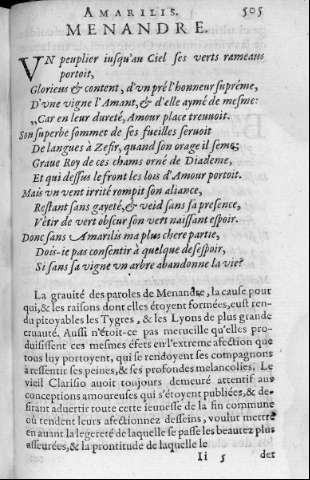 AMARILIS. 505
MENANDRE.
VN peuplier iusqu'au Ciel ses verts rameaux
portoit,
Glorieus & content, d'vn pré l'honneur supréme,
D'vne vigne l'Amant, & d'elle aymé de mesme:
„Car en leur dureté, Amour place treuuoit.
Son superbe sommet de ses fueilles seruoit
De langues à Zefir, quand son orage il seme;
Graue Roy de ces chams orné de Diademe,
Et qui dessus le front les lois d'Amour portoit.
Mais vn vent irrité rompit son aliance,
Restant sans gayeté, & veid sans sa presence,
Vétir de vert obscur son vert naissant espoir.
Donc sans Amarilis ma plus chere partie,
Dois-ie pas consentir à quelque desespoir,
Si sans sa vigne vn arbre abandonne la vie?
La grauité des paroles de Menandre, la cause pour
qui, & les raisons dont elles étoyent formées, eust ren-
du pitoyables les Tygres, & les Lyons de plus grande
cruauté. Aussi n'étoit-ce pas merueille qu'elles pro-
duisissent ces mesmes éfets en l'extreme afection que
tous luy portoyent, qui se rendoyent ses compagnons
à ressentir ses peines, & ses profondes melancolies. Le
vieil Clarisio auoit toujours demeuré attentif aus
conceptions amoureuses qui s'étoyent publiées, & de-
sirant aduertir toute cette ieunesse de la fin commune
où tendent leurs afectionnez desseins, voulut mettre
en auant la legereté de laquelle se passe les beautez plus
asseurées, & la prontitude de laquelle le
Ii 5 det